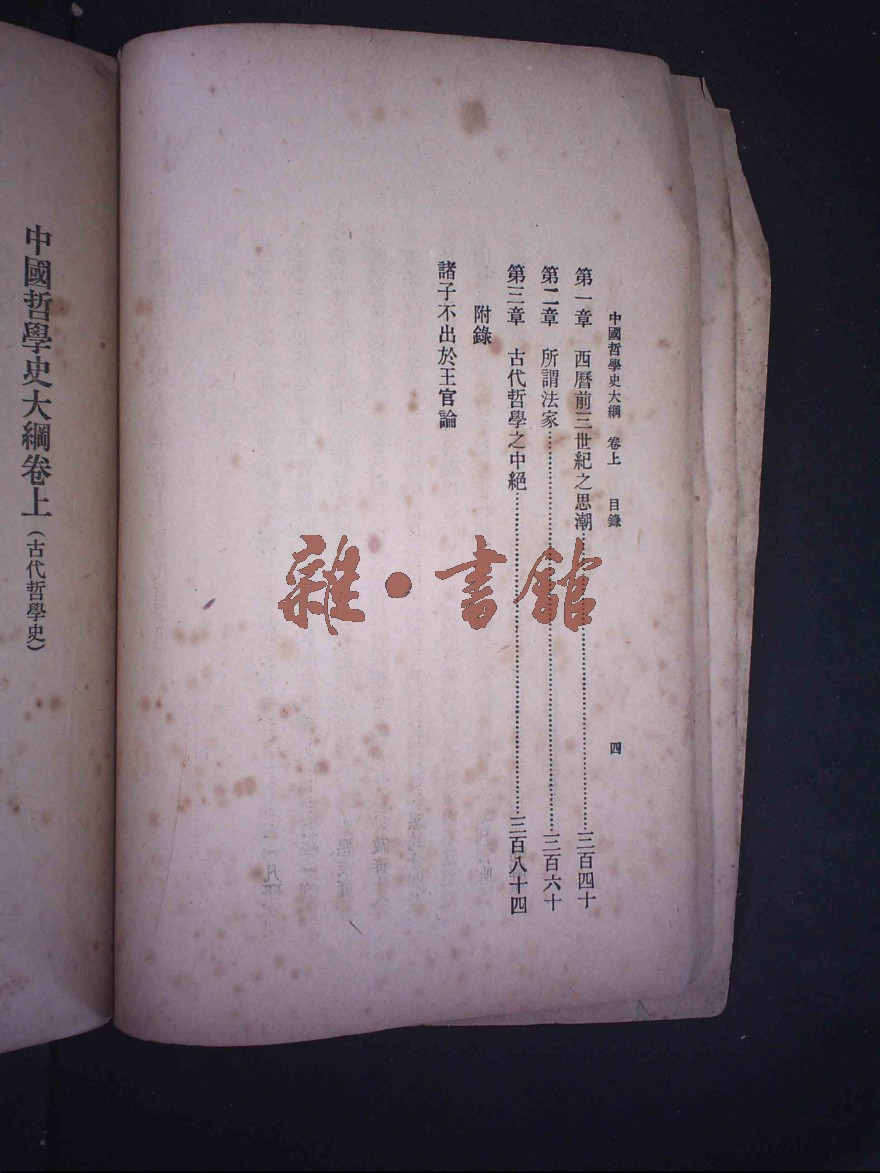 中國哲學史大綱　卷上　目錄　四
第一章　西曆前三世紀之思潮……三百四十
第二章　所謂法家……三百六十
第三章　古代哲學之中絕……三百八十四
附錄
諸子不出於王官論
中國哲學史大綱卷上（古代哲學史）
雜·書館